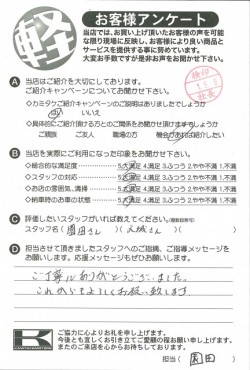 軽
お客様アンケート
当店では、お買い上げ頂いたお客様の声を可能
な限り現場に反映し、お客様により良い商品と
サービスを提供する事に努めています。
大変お手数ですが是非お声をお聞かせ下さい。
A 当店はご紹介を大切にしております。
ご紹介キャンペーンについてお聞かせ下さい。
◇カミタケご紹介キャンペーンのご説明はありましたでしょうか
はい いいえ
◇具体的にご紹介頂ける方とのご関係をお聞かせ頂けますでしょうか
ご親族 ご友人 職場の方 機会があれば紹介したい
B 当店を実際にご利用になった印象をお聞かせ下さい。
◇総合的な満足度 5.大満足 4.満足 3.ふつう 2.やや不満 1.不満
◇スタッフの対応 5.大満足 4.満足 3.ふつう 2.やや不満 1.不満
◇お店の雰囲気、清掃 5.大満足 4.満足 3.ふつう 2.やや不満 1.不満
◇納車時のお車の状態 5.大満足 4.満足 3.ふつう 2.やや不満 1.不満
C 評価したいスタッフがいれば教えてください。(複数回答可)
スタッフ名( 園田さん )( さん )
D 担当させて頂きましたスタッフへのご指摘、ご指導メッセージを
お願いします。応援メッセージもぜひお願いします。
ご丁寧にありがとうございました。
これからもよろしくお願い致します。
ご協力に心よりお礼を申し上げます。
今後とも宜しくお引き立てご愛顧の程お願い申し上げます。
またのご来店を心からお待ちしております。
担当( 園田 )